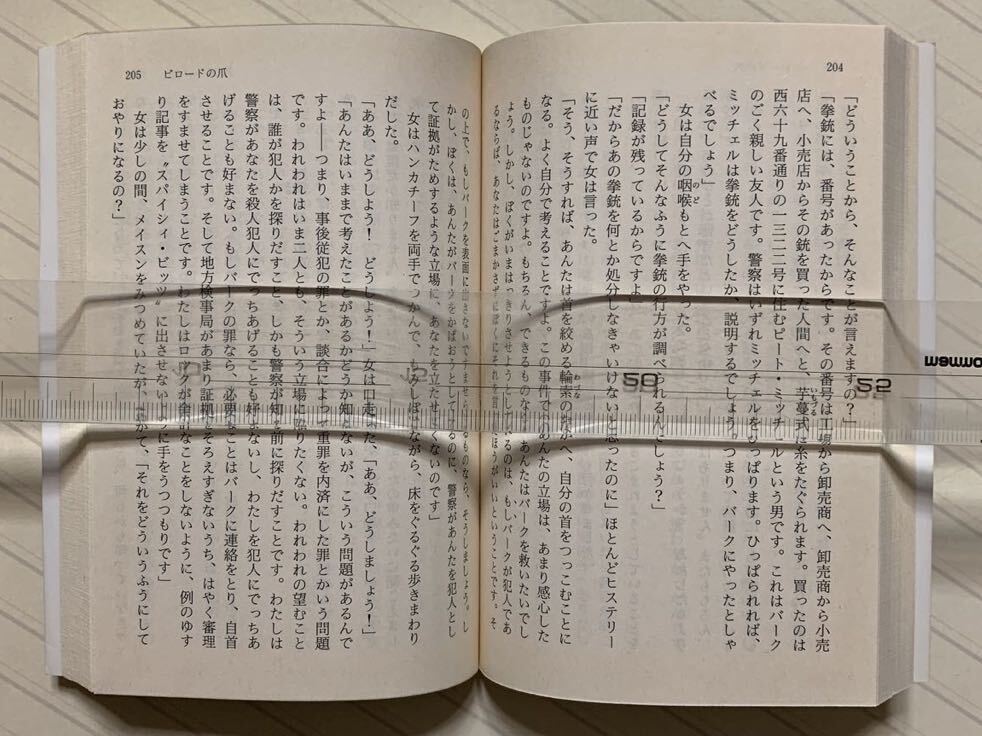 204
「どういうことから、そんなことが言えますの？」
「拳銃には、番号があったからです。その番号は工場から卸売商へ、卸売商から小売
店へ、小売店からその銃を買った人間へと、芋蔓式に糸をたぐられます。買ったのは
西六十九番通りの一三二二号に住むピート・ミッチェルという男です。これはバーク
のごく親しい友人です。警察はいずれミッチェルをひっぱります。ひっぱられれば、
ミッチェルは拳銃をどうしたか、説明するでしょう。つまり、バークにやったとしゃ
べるでしょう」
女は自分の咽喉もとへ手をやった。
「どうしてそんなふうに拳銃の行方が調べられるんでしょう？」
「記録が残っているからですよ」
「だからあの拳銃を何とか処分しなきゃいけないと思ったのに」ほとんどヒステリー
に近い声で女は言った。
「そう、そうすれば、あんたは首を絞める輪索のなかへ、自分の首をつっこむことに
なる。よく自分で考えることですよ。この事件でのあんたの立場は、あまり感心した
ものじゃないのですよ。もちろん、できるものなら、あんたはバークを救いたいでし
ょう。しかし、ぼくがいまはっきりさせようとしているのは、もしバークが犯人であ
るならば、あなたはごまかさずにぼくにそれを言ったほうがいいということです。そ
205 ビロードの爪
の上で、もしバークを表面に出さないですませられるものなら、そうしましょう。し
かし、ぼくは、あんたがバークをかばおうとしているのに、警察があんたを犯人とし
て証拠がためするような立場に、あなたを立たせたくないのです」
女はハンカチーフを両手でつかんで、もみしぼりながら、床をぐるぐる歩きまわり
だした。
「ああ、どうしよう！ どうしよう！」女は口走った、「ああ、どうしましょう！」
「あんたはいままで考えたことがあるかどうか知らないが、こういう問題があるんで
すよ――つまり、事後従犯の罪とか、談合によって重罪を内済にした罪とかいう問題
です。われわれはいま二人とも、そういう立場に陥りたくない。われわれの望むこと
は、誰が犯人かを探りだすこと、しかも警察が知る前に探りだすことです。わたしは
警察があなたを殺人犯人にでっちあげることも好まないし、わたしを犯人にでっちあ
げることも好まない。もしバークの罪なら、必要なことはバークに連絡をとり、自首
させることです。そして地方検事局があまり証拠をそろえすぎないうち、はやく審理
をすませてしまうことです。わたしはロックが余計なことをしないように、例のゆす
り記事を〝スパイシィ・ビッツ〟に出させないように手をうつつもりです」
女は少しの間、メイスンをみつめていたが、やがて、「それをどういうふうにして
おやりになるの？」
50
55